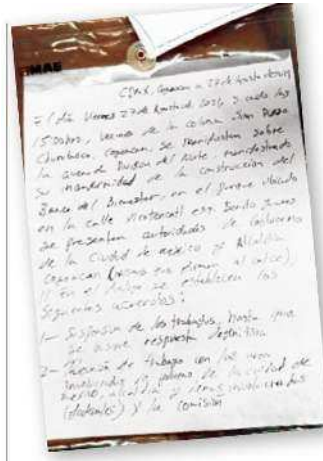 MAE
CDMX, Coyoacán a 27 de Agosto de
El día Viernes 27 de Agosto de siendo las
15:00 hrs, vecinos de la colonia San Diego
Churubusco, Coyoacán, se manifiestan sobre
la avenida División del Norte, manifestando
su inconformidad de la construcción del
Banco del Bienestar, en el parque ubicado
en la calle Xicoténcatl esq.
se presentan autoridades de Gobierno
de la Ciudad de México y Alcaldía
Coyoacán (quienes firman al calce),
en el se establecen los
siguientes acuerdos:
1- Suspensión de los trabajos, hasta que
se respuesta definitiva
2- de trabajo con los
involucrados de la ciudad de
México, alcaldía y demás involucrados
y la comisión